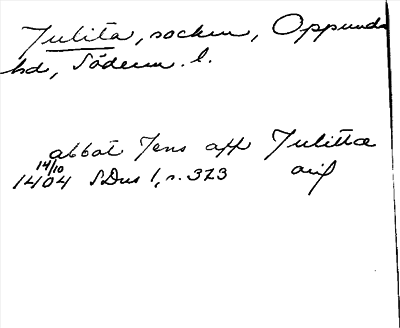 Julita, socken, Oppunda
hd, Söderm. l.
abbat Jens aff Julitta
14/10
1404 SDns 1, s. 323 avf